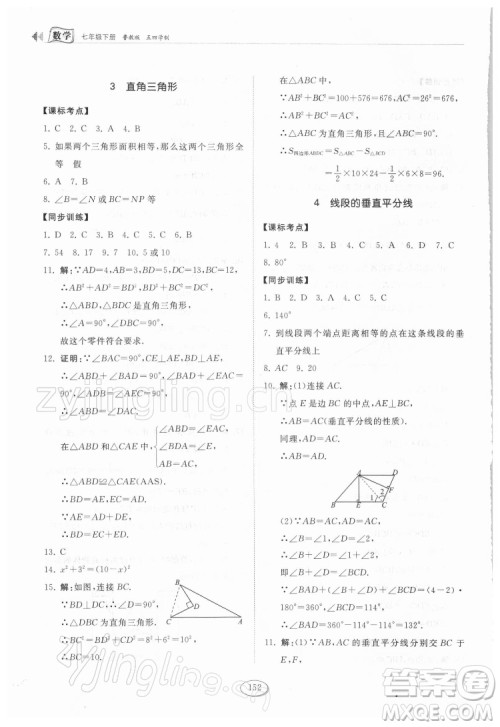 数学 七年级下册 鲁教版 五四学制
3 直角三角形
【课标考点】
1. C 2. C 3. A 4. B
5. 如果两个三角形面积相等,那么这两个三角形全
等 假
6. B 7. B
8. ∠B=∠N 或 BC=NP 等
【同步训练】
1. D 2. C 3. B 4. B 5. D 6. D
7. 54 8. 17 9. 7 10. 5 或 10
11. 解:∵AD=4,AB=3,BD=5,DC=13,BC=12,
∴AB²+AD²=BD²,
BD²+BC²=DC²,
∴△ABD、△BDC 是直角三角形,
∴∠A=90°,∠DBC=90°,
故这个零件符合要求.
12. 证明:∵∠BAC=90°,CE⊥AE,BD⊥AE,
∴∠ABD+∠BAD=90°,
∠BAD+∠DAC=90°,
∠ADB=∠AEC=90°,
∴∠ABD=∠DAC.
∵在△ABD 和△CAE 中,
∠ABD=∠EAC,
∠BDA=∠E,
AB=AC,
∴△ABD≌△CAE(AAS).
∴BD=AE,EC=AD.
∵AE=AD+DE,
∴BD=EC+ED.
13. C
14. x²+3²=(10-x)²
15. 解:如图,连接 BC.
∵BD⊥DC,
∴△BDC 为直角三角形.
∵BD=8,DC=6,
∴BC²=BD²+DC²
=8²+6²=100.
∴BC=10.
B
D
A
C
在△ABC 中,
∵AB²+BC²=576+100=676,
AC²=26²=676,
∴AB²+BC²=AC²,
∴△ABC 为直角三角形,且∠ABC=90°.
∴S四边形ABDC=S△ABC-S△BCD
=1/2×10×24-1/2×6×8=96.
4 线段的垂直平分线
【课标考点】
8. 80°
【同步训练】
1. B 2. D 3. D 4. C 5. A
6. 140°
7. 到线段两个端点距离相等的点在这条线段的垂
直平分线上
8. AC 9. 20
10. 解:(1)连接 AC.
∵点 E 是 BC 的中点,AE⊥BC,
∴AB=AC(垂直平分线的性质).
同理,AD=AC,
∴AB=AD.
A
D
F
B
E
C
1
2
(2)∵AB=AC,AD=AC,
∴∠B=∠1,∠D=∠2,
∴∠B+∠D=∠1+∠2,
11. 解:(1)∵AB、AC 的垂直平分线分别交 BC 于
E、F,
152
zyjingling.com
答案圈
MXQE.COM